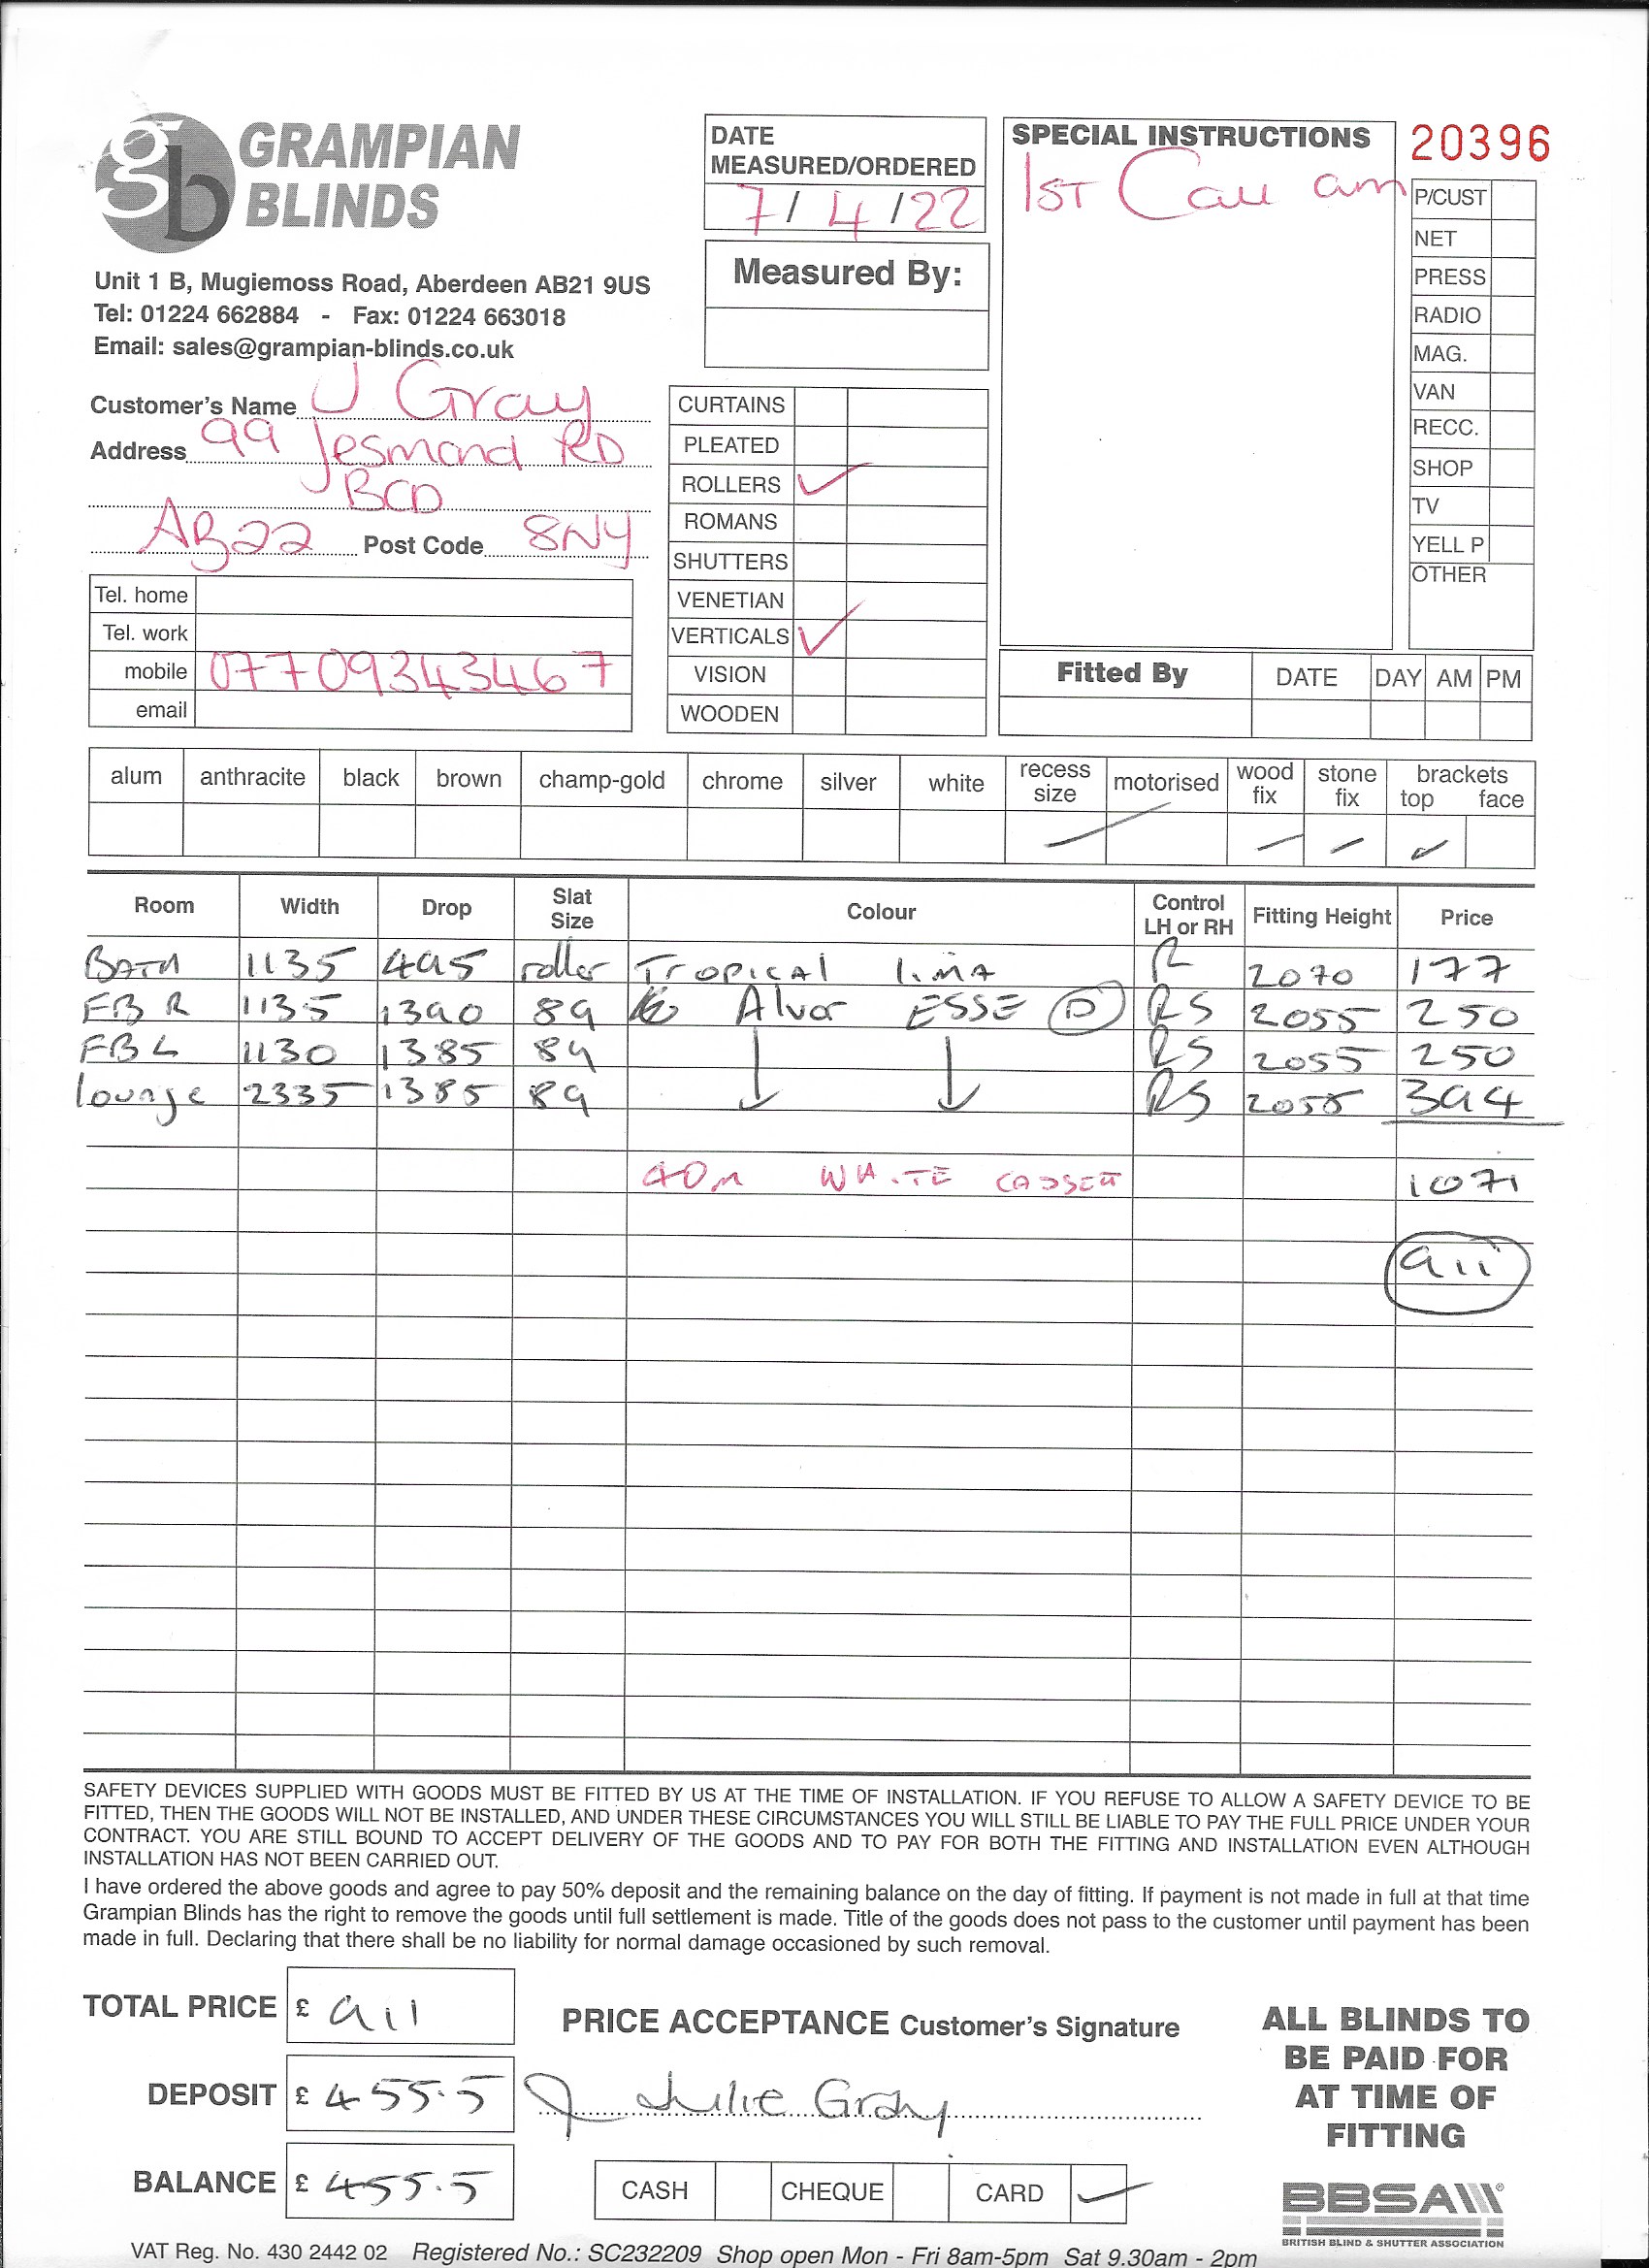 GRAMPIAN
BLINDS
Unit 1 B, Mugiemoss Road, Aberdeen AB21 9US
Tel: 01224 662884 - Fax: 01224 663018
Email: sales@grampian-blinds.co.uk
DATE
MEASURED/ORDERED
7/4/22
Measured By:
SPECIAL INSTRUCTIONS
1ST Call am
20396
P/CUST
NET
PRESS
RADIO
MAG.
VAN
RECC.
SHOP
TV
YELL P
OTHER
Customer's Name J Gray
Address 99 Jesmond RD
BOD
AB22 Post Code 8NY
Tel. home
Tel. work
mobile 07709343467
email
CURTAINS
PLEATED
ROLLERS ✓
ROMANS
SHUTTERS
VENETIAN
VERTICALS ✓
VISION
WOODEN
Fitted By DATE DAY AM PM
alum anthracite black brown champ-gold chrome silver white recess size motorised wood fix stone fix brackets top face
Room Width Drop Slat Size Colour Control LH or RH Fitting Height Price
BATH 1135 495 roller TROPICAL LIMA R 2070 177
FB R 1135 1390 89 Alvor ESSE D RS 2055 250
FB L 1130 1385 89 RS 2055 250
lounge 2335 1385 89 RS 2055 394
40m WHITE 1071
911
SAFETY DEVICES SUPPLIED WITH GOODS MUST BE FITTED BY US AT THE TIME OF INSTALLATION. IF YOU REFUSE TO ALLOW A SAFETY DEVICE TO BE
FITTED, THEN THE GOODS WILL NOT BE INSTALLED, AND UNDER THESE CIRCUMSTANCES YOU WILL STILL BE LIABLE TO PAY THE FULL PRICE UNDER YOUR
CONTRACT. YOU ARE STILL BOUND TO ACCEPT DELIVERY OF THE GOODS AND TO PAY FOR BOTH THE FITTING AND INSTALLATION EVEN ALTHOUGH
INSTALLATION HAS NOT BEEN CARRIED OUT.
I have ordered the above goods and agree to pay 50% deposit and the remaining balance on the day of fitting. If payment is not made in full at that time
Grampian Blinds has the right to remove the goods until full settlement is made. Title of the goods does not pass to the customer until payment has been
made in full. Declaring that there shall be no liability for normal damage occasioned by such removal.
TOTAL PRICE £ 911
DEPOSIT £ 455.5
BALANCE £ 455.5
PRICE ACCEPTANCE Customer's Signature
Julie Gray
CASH CHEQUE CARD ✓
ALL BLINDS TO
BE PAID FOR
AT TIME OF
FITTING
BBSA
BRITISH BLIND & SHUTTER ASSOCIATION
VAT Reg. No. 430 2442 02 Registered No.: SC232209 Shop open Mon - Fri 8am-5pm Sat 9.30am - 2pm